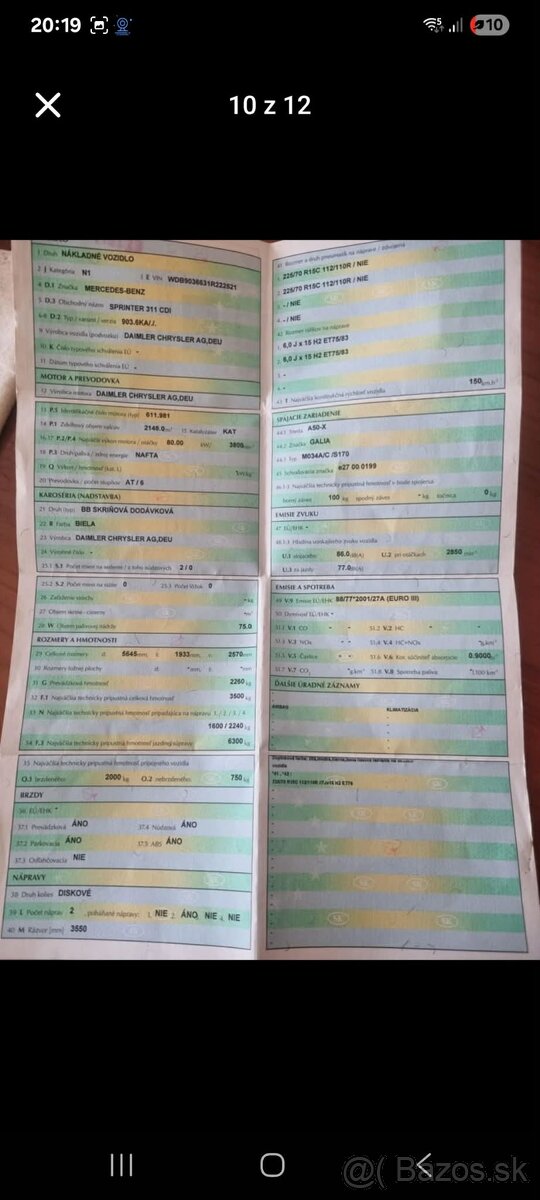 20:19
10
10 z 12
1 Druh NÁKLADNÉ VOZIDLO
2 J Kategória N1
3 E VIN WDB9036631R222521
4 D.1 Značka MERCEDES-BENZ
5 D.3 Obchodný názov SPRINTER 311 CDI
6-8 D.2 Typ / variant / verzia 903.6KA/./.
9 Výrobca vozidla (podvozku) DAIMLER CHRYSLER AG,DEU
10 K Číslo typového schválenia EÚ -
11 Dátum typového schválenia EÚ -
MOTOR A PREVODOVKA
12 Výrobca motora DAIMLER CHRYSLER AG,DEU
13 P.5 Identifikačné číslo motora (typ) 611.981
14 P.1 Zdvihový objem valcov 2148.0 15 Katalyzátor KAT
16,17 P.2/P.4 Najväčší výkon motora / otáčky 80.00 kW/ 3800
18 P.3 Druh paliva / zdroj energie NAFTA
19 Q Výkon / hmotnosť (kat. L) kW/kg
20 Prevodovka / počet stupňov AT / 6
KAROSÉRIA (NADSTAVBA)
21 Druh (typ) BB SKRIŇOVÁ DODÁVKOVÁ
22 R Farba BIELA
23 Výrobca DAIMLER CHRYSLER AG,DEU
24 Výrobné číslo -
25.1 S.1 Počet miest na sedenie / z toho núdzových 2 / 0
25.2 S.2 Počet miest na státie 0 25.3 Počet lôžok 0
26 Zaťaženie strechy - kg
27 Objem skrine - cisterny
28 W Objem palivovej nádrže 75.0
ROZMERY A HMOTNOSTI
29 Celkové rozmery d. 5645mm, š. 1933mm, v. 2570mm
30 Rozmery ložnej plochy d. *mm, š. *mm
31 G Prevádzková hmotnosť 2260 kg
32 F.1 Najväčšia technicky prípustná celková hmotnosť 3500 kg
33 N Najväčšia technicky prípustná hmotnosť pripadajúca na nápravu 1. / 2. / 3. / 4.
1600 / 2240 kg
34 F.3 Najväčšia technicky prípustná hmotnosť jazdnej súpravy 6300 kg
35 Najväčšia technicky prípustná hmotnosť prípojného vozidla
O.1 brzdeného 2000 kg O.2 nebrzdeného 750 kg
BRZDY
36 EÚ/EHK *
37.1 Prevádzková ÁNO 37.4 Núdzová ÁNO
37.2 Parkovacia ÁNO 37.5 ABS ÁNO
37.3 Odľahčovacia NIE
NÁPRAVY
38 Druh kolies DISKOVÉ
39 L Počet náprav 2 , poháňané nápravy: 1. NIE 2. ÁNO 3. NIE 4. NIE
40 M Rázvor [mm] 3550
41 Rozmer a druh pneumatík na náprave / zdvojená
1. 225/70 R15C 112/110R / NIE
2. 225/70 R15C 112/110R / NIE
3. - / NIE
4. - / NIE
42 Rozmer ráfikov na náprave
1. 6,0 J x 15 H2 ET75/83
2. 6,0 J x 15 H2 ET75/83
3. -
4. -
43 T Najväčšia konštrukčná rýchlosť vozidla 150 km.h
SPÁJACIE ZARIADENIE
44.1 Trieda A50-X
44.2 Značka GALIA
44.3 Typ M034A/C /S170
45 Schvaľovacia značka e27 00 0199
46.1-3 Najväčšie technicky prípustné hmotnosti v bode spojenia
horný záves 100 kg spodný záves * kg točnica 0 kg
EMISIE ZVUKU
47 EÚ/EHK *
48.1-3 Hladina vonkajšieho zvuku vozidla
U.1 stojaceho 86.0 dB(A) U.2 pri otáčkach 2850
U.3 za jazdy 77.0 dB(A)
EMISIE A SPOTREBA
49 V.9 Emisie EÚ/EHK 88/77*2001/27A (EURO III)
50 Skratkový EÚ/EHK -
51.1 V.1 CO - 51.2 V.2 HC -
51.3 V.3 NOx - 51.4 V.4 HC+NOx *g.km
51.5 V.5 Častice - 51.6 V.6 Kor. súčiniteľ absorpcie 0.9000
51.7 V.7 CO2 *g.km 51.8 V.8 Spotreba paliva *l.100 km
ĎALŠIE ÚRADNÉ ZÁZNAMY
AIRBAG KLIMATIZÁCIA
vozidla
*41 , *42 :
@( Bazos.sk